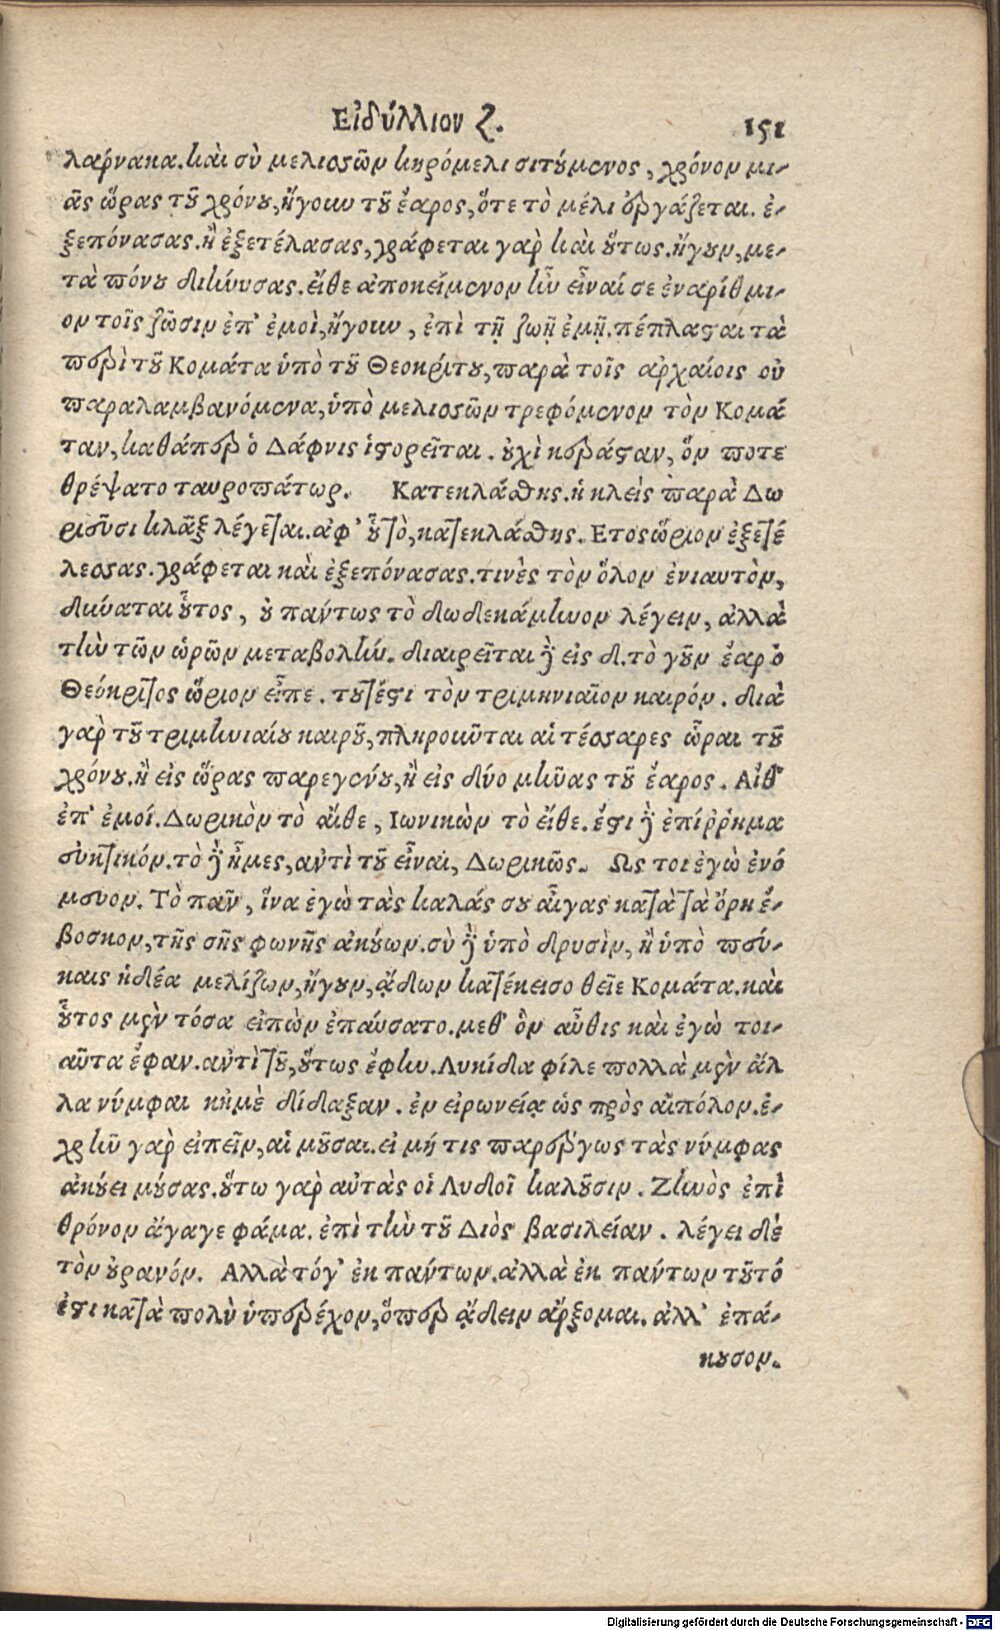 Εἰδύλλιον ζ. 151
λάρνακα. καὶ σὺ μελισσῶν κηρόμελι σιτούμενος, χρόνον μι-
ᾶς ὥρας τοῦ χρόνου, ἤγουν τοῦ ἔαρος, ὅτε τὸ μέλι ἐργάζεται. ἐ-
ξεπόνασας. ἢ ἐξετέλασας, γράφεται γὰρ καὶ οὕτως. ἤγουν, με-
τὰ πόνου διήνυσας. εἴθε ἀποκείμενον ἦν εἶναί σε ἐναρίθμι-
ον τοῖς ζῶσιν ἐπ' ἐμοὶ, ἤγουν, ἐπὶ τῇ ζωῇ ἐμῇ. πέπλασται τὰ
περὶ τοῦ Κομάτα ὑπὸ τοῦ Θεοκρίτου, παρὰ τοῖς ἀρχαίοις οὐ
παραλαμβανόμενα, ὑπὸ μελισσῶν τρεφόμενον τὸν Κομά
ταν, καθάπερ ὁ Δάφνις ἱστορεῖται. οὐχὶ κεράσταν, ὅν ποτε
θρέψατο ταυροπάτωρ. Κατεκλάσθης. ἡ κλεὶς παρὰ Δω
ριεῦσι κλὰξ λέγεται. ἀφ' οὗ τὸ, κατεκλάσθης. Ετος ὥριον ἐξετέ
λεσσας. γράφεται καὶ ἐξεπόνασας. τινὲς τὸν ὅλον ἐνιαυτὸν,
δύναται οὗτος, οὐ πάντως τὸ δωδεκάμηνον λέγειν, ἀλλὰ
τὴν τῶν ὡρῶν μεταβολήν. διαιρεῖται δὲ εἰς δ. τὸ γοῦν ἔαρ ὁ
Θεόκριτος ὥριον εἶπε. τουτέστι τὸν τριμηνιαῖον καιρόν. διὰ
γὰρ τοῦ τριμηνιαίου καιροῦ, πληροῦνται αἱ τέσσαρες ὧραι τοῦ
χρόνου. ἢ εἰς ὥρας παρεγένου, ἢ εἰς δύο μῆνας τοῦ ἔαρος. Αἴθ'
ἐπ' ἐμοί. Δωρικὸν τὸ αἴθε, Ιωνικὸν τὸ εἴθε. ἔστι δὲ ἐπίῤῥημα
εὐκτικόν. τὸ δὲ ἦμες, ἀντὶ τοῦ εἶναι, Δωρικῶς. Ως τοι ἐγὼ ἐνό
μευον. Τὸ πᾶν, ἵνα ἐγὼ τὰς καλάς σου αἶγας κατὰ τὰ ὄρη ἔ-
βοσκον, τῆς σῆς φωνῆς ἀκούων. σὺ δὲ ὑπὸ δρυσὶν, ἢ ὑπὸ πεύ-
καις ἡδέα μελίζων, ἤγουν, ᾄδων κατέκεισο θεῖε Κομάτα. καὶ
οὗτος μὲν τόσα εἰπὼν ἐπαύσατο. μεθ' ὃν αὖθις καὶ ἐγὼ τοι-
αῦτα ἔφαν. ἀντὶ τοῦ, οὕτως ἔφην. Λυκίδα φίλε πολλὰ μὲν ἄλ
λα νύμφαι κἠμὲ δίδαξαν. ἐν εἰρωνείᾳ ὡς πρὸς αἰπόλον. ἐ-
χρῆν γὰρ εἰπεῖν, αἱ μοῦσαι. εἰ μή τις παρέργως τὰς νύμφας
ἀκούει μούσας. οὕτω γὰρ αὐτὰς οἱ Λυδοὶ καλοῦσιν. Ζηνὸς ἐπὶ
θρόνον ἄγαγε φάμα. ἐπὶ τὴν τοῦ Διὸς βασιλείαν. λέγει δὲ
τὸν οὐρανόν. Αλλὰ τόγ' ἐκ πάντων. ἀλλὰ ἐκ πάντων τοῦτό
ἐστι κατὰ πολὺ ὑπερέχον, ὅπερ ᾄδειν ἄρξομαι. ἀλλ' ἐπά-
κουσον.
Digitalisierung gefördert durch die Deutsche Forschungsgemeinschaft - DFG